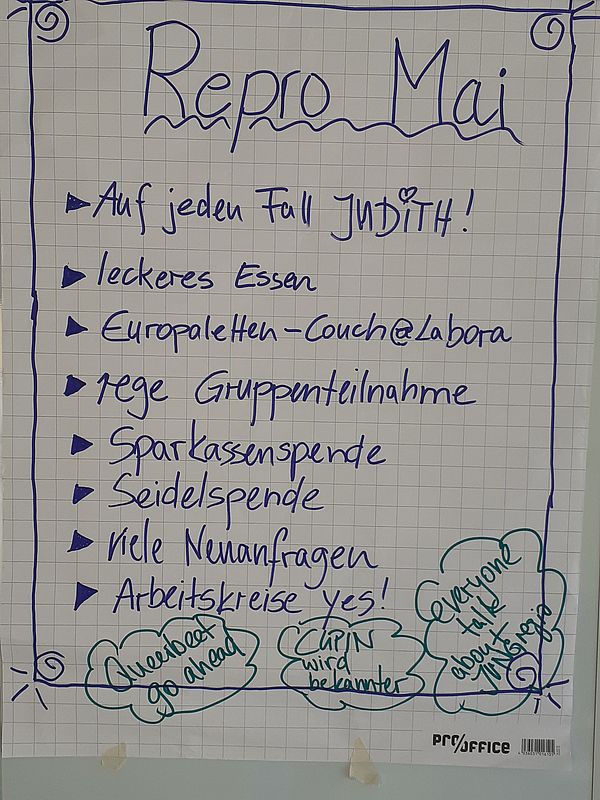 Repro Mai
Auf jeden Fall JUDiTH!
leckeres Essen
Europaletten-Couch@Labora
rege Gruppenteilnahme
Sparkassenspende
Seidelspende
viele Neuanfragen
Arbeitskreise yes!
Queerbeet
go ahead
CUPIN
wird
bekannter
everyone
talk
about
JUNGregio
PRO/OFFICE